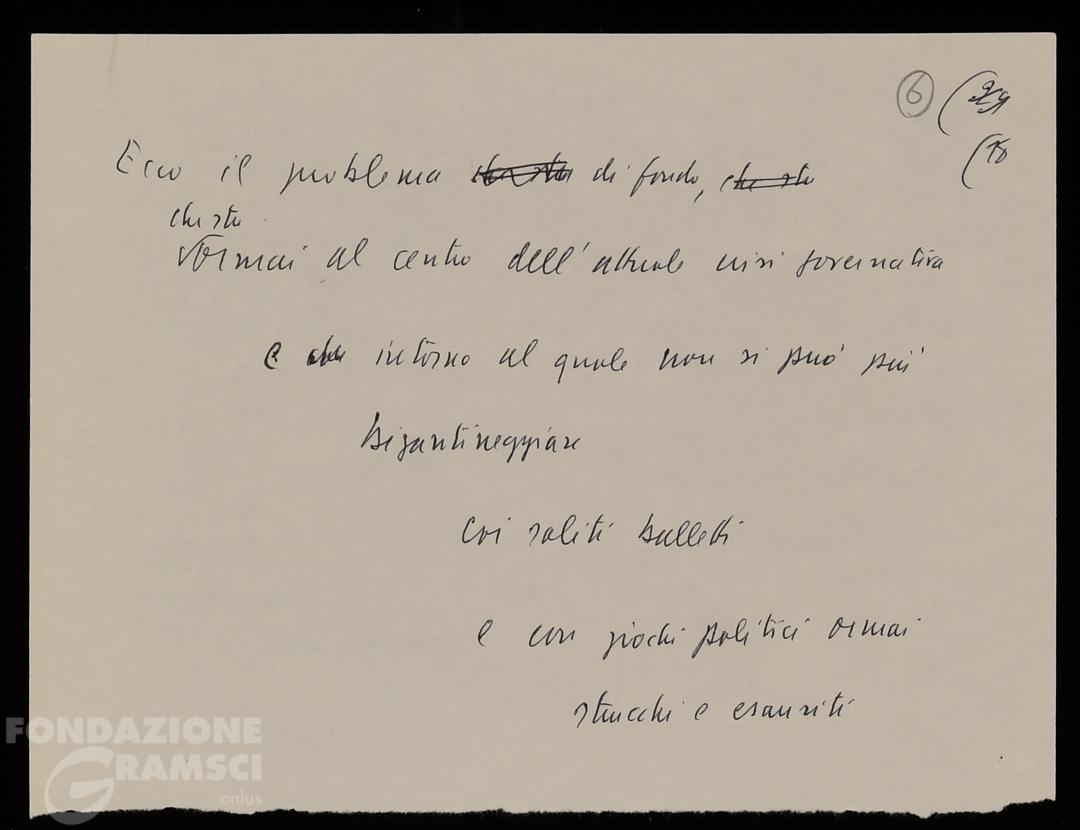 6
Ecco il problema di fondo, che sta
che sta
ormai al centro dell'attuale crisi governativa
e intorno al quale non si può più
bizantineggiare
coi soliti balletti
e con giochi politici ormai
stucchi e esauriti
FONDAZIONE
GRAMSCI
onlus